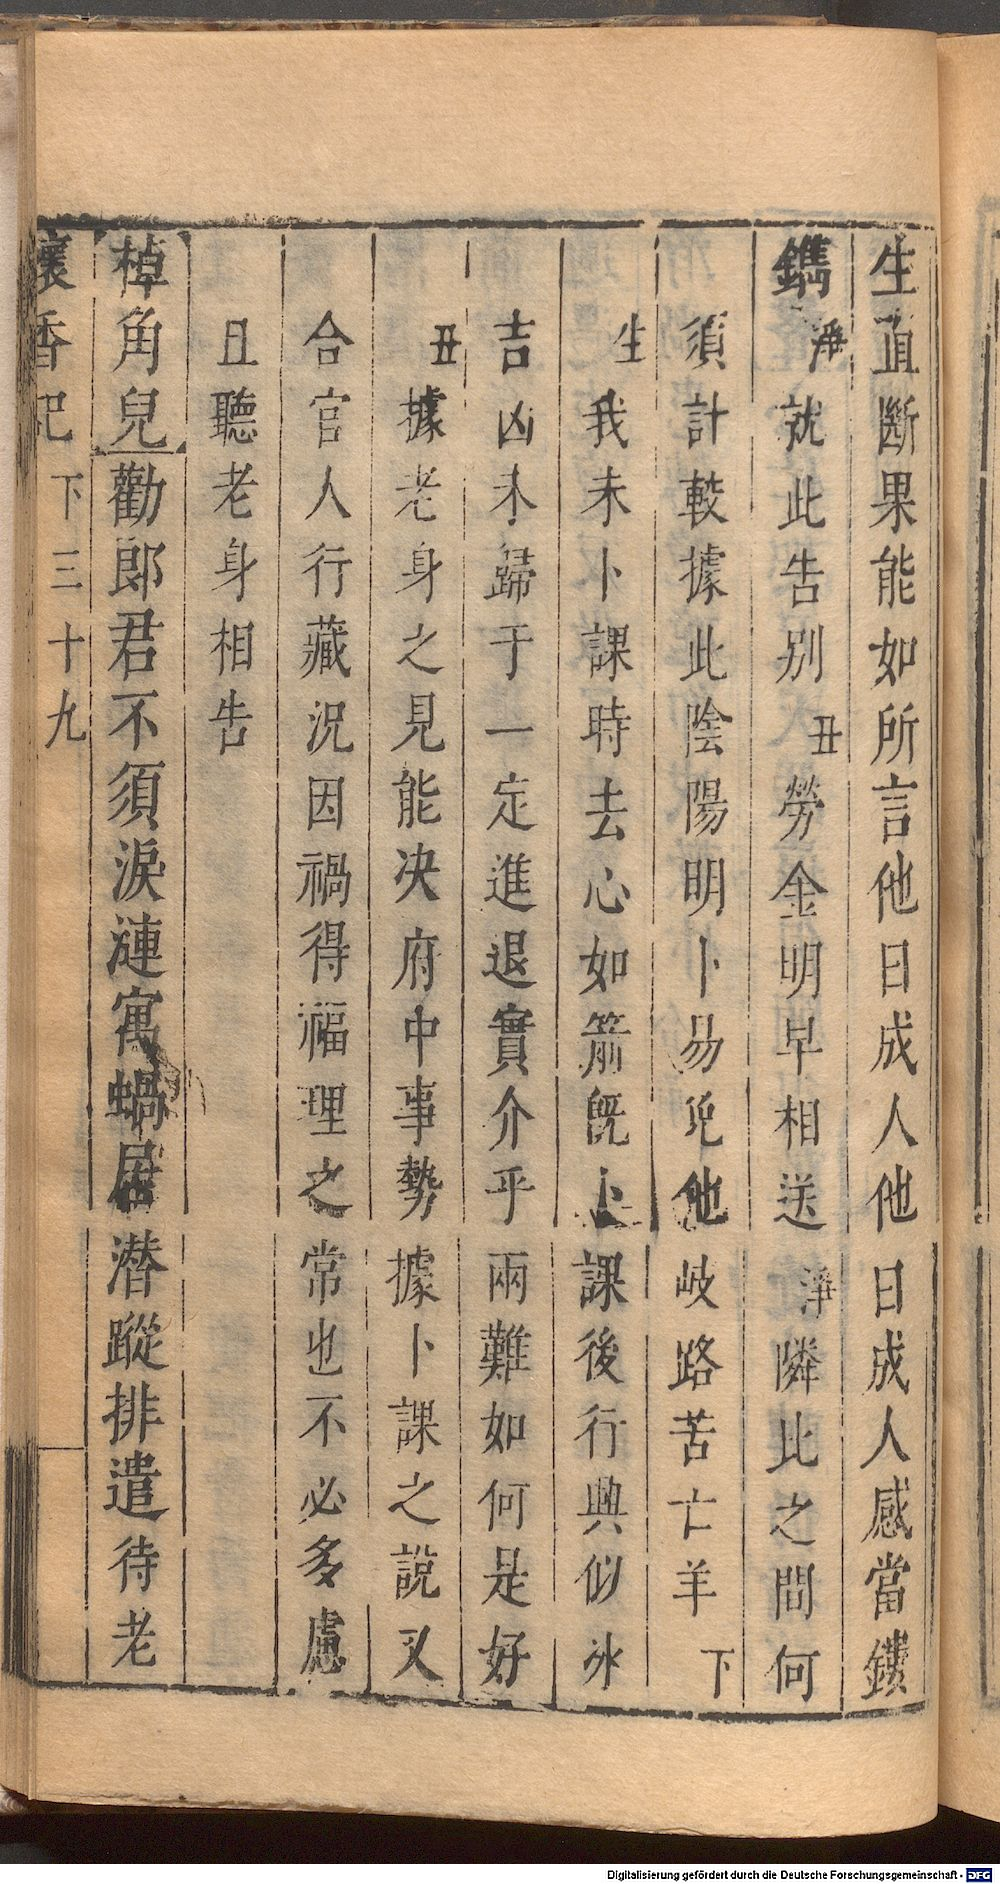 生直斷果能如所言他日成人他日成人感當鏤
鐫淨就此告别丑勞金明早相送淨隣比之間何
須計較據此陰陽明卜易免他岐路苦亡羊下
生我未卜課時去心如箭旣卜課後行興似冰
吉凶未歸于一定進退實介乎兩難如何是好
丑據老身之見能决府中事勢據卜課之說又
合官人行藏况因禍得福理之常也不必多慮
且聽老身相告
棹角兒勸郎君不須淚漣寓蝸居潜蹤排遣待老
懷香記下三十九
Digitalisierung gefördert durch die Deutsche Forschungsgemeinschaft - DFG